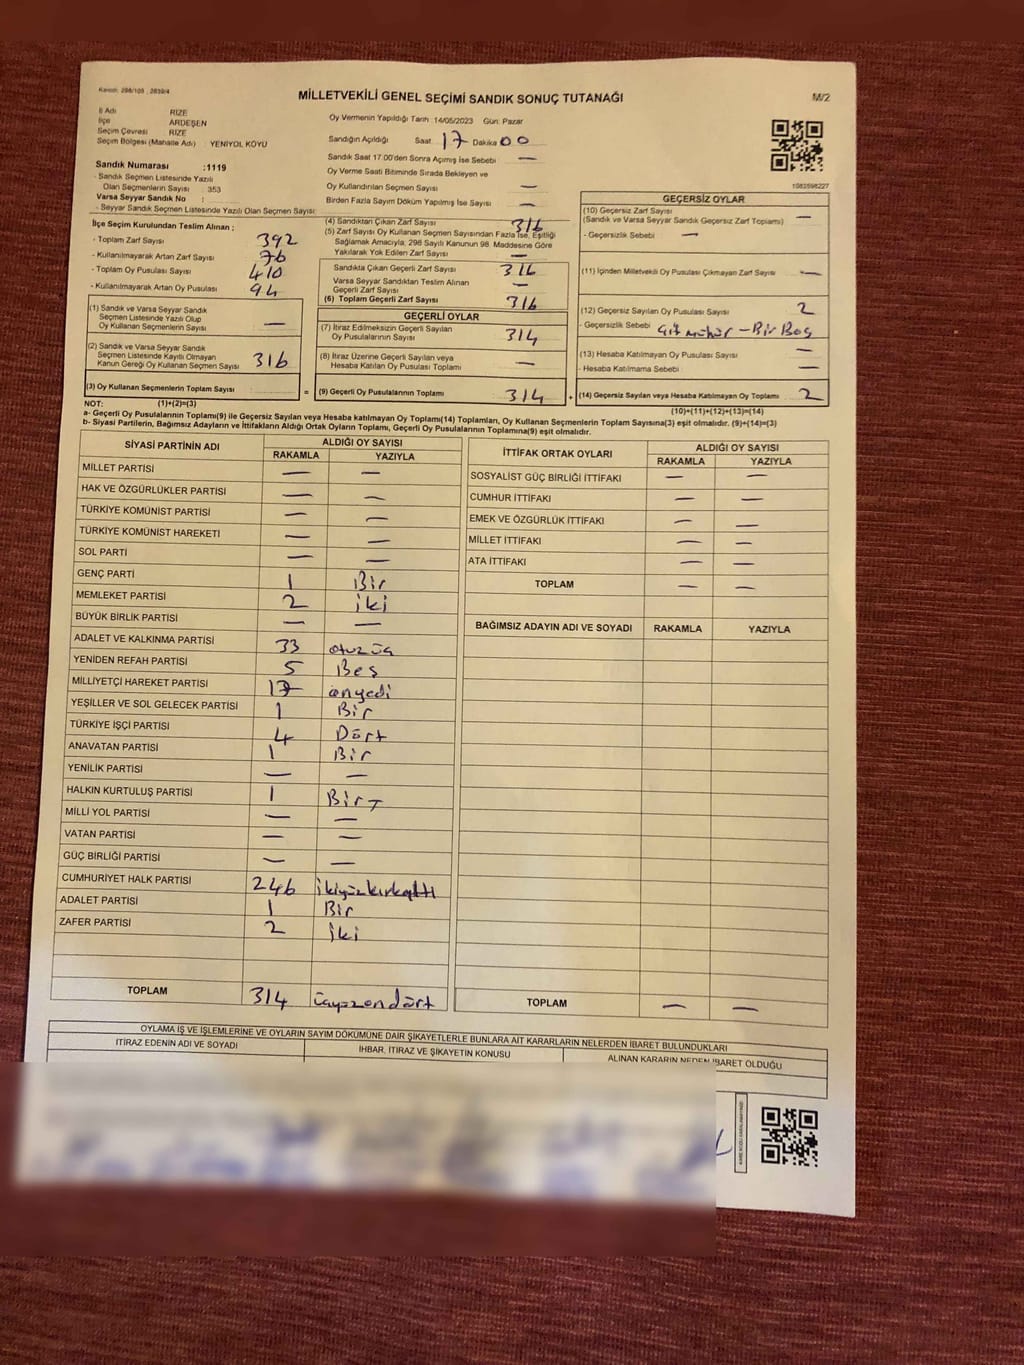 Kanun: 298/105 , 2839/4
MİLLETVEKİLİ GENEL SEÇİMİ SANDIK SONUÇ TUTANAĞI
M/2
İl Adı RİZE
İlçe ARDEŞEN
Seçim Çevresi RİZE
Seçim Bölgesi (Mahalle Adı) : YENİYOL KÖYÜ
Sandık Numarası :1119
- Sandık Seçmen Listesinde Yazılı
Olan Seçmenlerin Sayısı : 353
Varsa Seyyar Sandık No :
- Seyyar Sandık Seçmen Listesinde Yazılı Olan Seçmen Sayısı:
Oy Vermenin Yapıldığı Tarih :14/05/2023 Gün: Pazar
Sandığın Açıldığı Saat 17 Dakika 00
Sandık Saat 17.00'den Sonra Açımış İse Sebebi —
Oy Verme Saati Bitiminde Sırada Bekleyen ve
Oy Kullandırılan Seçmen Sayısı —
Birden Fazla Sayım Döküm Yapılmış İse Sayısı —
1083598227
İlçe Seçim Kurulundan Teslim Alınan ;
- Toplam Zarf Sayısı 392
- Kullanılmayarak Artan Zarf Sayısı 76
- Toplam Oy Pusulası Sayısı 410
- Kullanılmayarak Artan Oy Pusulası 94
(1) Sandık ve Varsa Seyyar Sandık
Seçmen Listesinde Yazılı Olup
Oy Kullanan Seçmenlerin Sayısı —
(2) Sandık ve Varsa Seyyar Sandık
Seçmen Listesinde Kayıtlı Olmayan
Kanun Gereği Oy Kullanan Seçmen Sayısı 316
(3) Oy Kullanan Seçmenlerin Toplam Sayısı =
(4) Sandıktan Çıkan Zarf Sayısı 316
(5) Zarf Sayısı Oy Kullanan Seçmen Sayısından Fazla İse, Eşitliği
Sağlamak Amacıyla, 298 Sayılı Kanunun 98. Maddesine Göre
Yakılarak Yok Edilen Zarf Sayısı —
Sandıkta Çıkan Geçerli Zarf Sayısı 316
Varsa Seyyar Sandıktan Teslim Alınan
Geçerli Zarf Sayısı —
(6) Toplam Geçerli Zarf Sayısı 316
GEÇERLİ OYLAR
(7) İtiraz Edilmeksizin Geçerli Sayılan
Oy Pusulasının Sayısı 314
(8) İtiraz Üzerine Geçerli Sayılan veya
Hesaba Katılan Oy Pusulası Toplamı —
(9) Geçerli Oy Pusulalarının Toplamı 314 +
GEÇERSİZ OYLAR
(10) Geçersiz Zarf Sayısı
(Sandık ve Varsa Seyyar Sandık Geçersiz Zarf Toplamı) —
- Geçersizlik Sebebi —
(11) İçinden Milletvekili Oy Pusulası Çıkmayan Zarf Sayısı —
(12) Geçersiz Sayılan Oy Pusulası Sayısı 2
- Geçersizlik Sebebi çift mühür – Bir Boş
(13) Hesaba Katılmayan Oy Pusulası Sayısı —
- Hesaba Katılmama Sebebi —
(14) Geçersiz Sayılan veya Hesaba Katılmayan Oy Toplamı 2
NOT: (1)+(2)=(3) (10)+(11)+(12)+(13)=(14)
a- Geçerli Oy Pusulalarının Toplamı(9) ile Geçersiz Sayılan veya Hesaba katılmayan Oy Toplamı(14) Toplamları, Oy Kullanan Seçmenlerin Toplam Sayısına(3) eşit olmalıdır. (9)+(14)=(3)
b- Siyasi Partilerin, Bağımsız Adayların ve İttifakların Aldığı Ortak Oyların Toplamı, Geçerli Oy Pusulalarının Toplamına(9) eşit olmalıdır.
SİYASİ PARTİNİN ADI ALDIĞI OY SAYISI
RAKAMLA YAZIYLA
MİLLET PARTİSİ — —
HAK VE ÖZGÜRLÜKLER PARTİSİ — —
TÜRKİYE KOMÜNİST PARTİSİ — —
TÜRKİYE KOMÜNİST HAREKETİ — —
SOL PARTİ — —
GENÇ PARTİ 1 Bir
MEMLEKET PARTİSİ 2 iki
BÜYÜK BİRLİK PARTİSİ — —
ADALET VE KALKINMA PARTİSİ 33 otuzüç
YENİDEN REFAH PARTİSİ 5 Beş
MİLLİYETÇİ HAREKET PARTİSİ 17 onyedi
YEŞİLLER VE SOL GELECEK PARTİSİ 1 Bir
TÜRKİYE İŞÇİ PARTİSİ 4 Dört
ANAVATAN PARTİSİ 1 Bir
YENİLİK PARTİSİ — —
HALKIN KURTULUŞ PARTİSİ 1 Bir
MİLLİ YOL PARTİSİ — —
VATAN PARTİSİ — —
GÜÇ BİRLİĞİ PARTİSİ — —
CUMHURİYET HALK PARTİSİ 246 ikiyüzkırkaltı
ADALET PARTİSİ 1 Bir
ZAFER PARTİSİ 2 iki
TOPLAM 314 üçyüzondört
İTTİFAK ORTAK OYLARI ALDIĞI OY SAYISI
RAKAMLA YAZIYLA
SOSYALİST GÜÇ BİRLİĞİ İTTİFAKI — —
CUMHUR İTTİFAKI — —
EMEK VE ÖZGÜRLÜK İTTİFAKI — —
MİLLET İTTİFAKI — —
ATA İTTİFAKI — —
TOPLAM — —
BAĞIMSIZ ADAYIN ADI VE SOYADI RAKAMLA YAZIYLA
TOPLAM — —
OYLAMA İŞ VE İŞLEMLERİNE VE OYLARIN SAYIM DÖKÜMÜNE DAİR ŞİKAYETLERLE BUNLARA AİT KARARLARIN NELERDEN İBARET BULUNDUKLARI
İTİRAZ EDENİN ADI VE SOYADI İHBAR, İTİRAZ VE ŞİKAYETİN KONUSU ALINAN KARARIN NEDEN İBARET OLDUĞU